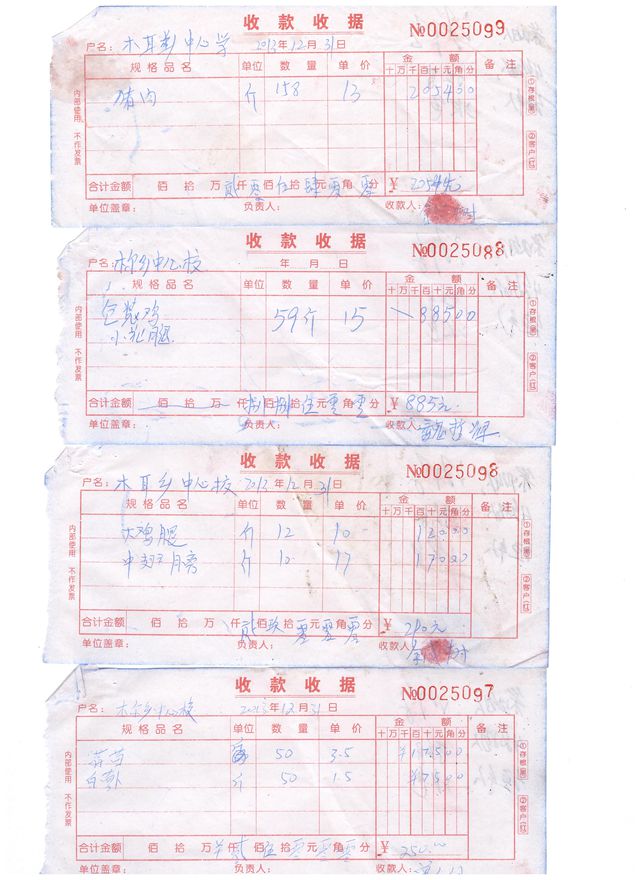 收款收据 №0025099
户名：木耳乡中心学 2013年12月31日
规格品名 单位 数量 单价 金额 备注
十万千百十元角分
猪肉 斤 158 13 205400
内部使用 不作发票
①存根(黑) ②客户(红)
合计金额 佰拾万贰仟零佰伍拾肆元零角零分 ¥2054元
单位盖章： 负责人： 收款人：
收款收据 №0025088
户名：木尔乡中心校 年月日
规格品名 单位 数量 单价 金额 备注
十万千百十元角分
包装鸡 59斤 15 88500
小鸡腿
内部使用 不作发票
①存根(黑) ②客户(红)
合计金额 佰拾万仟捌佰捌拾伍元零角零分 ¥885元
单位盖章： 负责人： 收款人：
收款收据 №0025098
户名：木耳乡中心校 2013年12月31日
规格品名 单位 数量 单价 金额 备注
十万千百十元角分
大鸡腿 斤 12 10 12000
中翅 斤 10 17 17000
内部使用 不作发票
①存根(黑) ②客户(红)
合计金额 佰拾万仟贰佰玖拾零元零角零分 ¥290元
单位盖章： 负责人： 收款人：
收款收据 №0025097
户名：木尔乡中心校 2013年12月31日
规格品名 单位 数量 单价 金额 备注
十万千百十元角分
50 3.5 ¥17500
白萝卜 斤 50 1.5 ¥7500
内部使用 不作发票
①存根(黑) ②客户(红)
合计金额 佰拾万仟贰佰伍拾零元零角零分 ¥250.00
单位盖章： 负责人： 收款人：